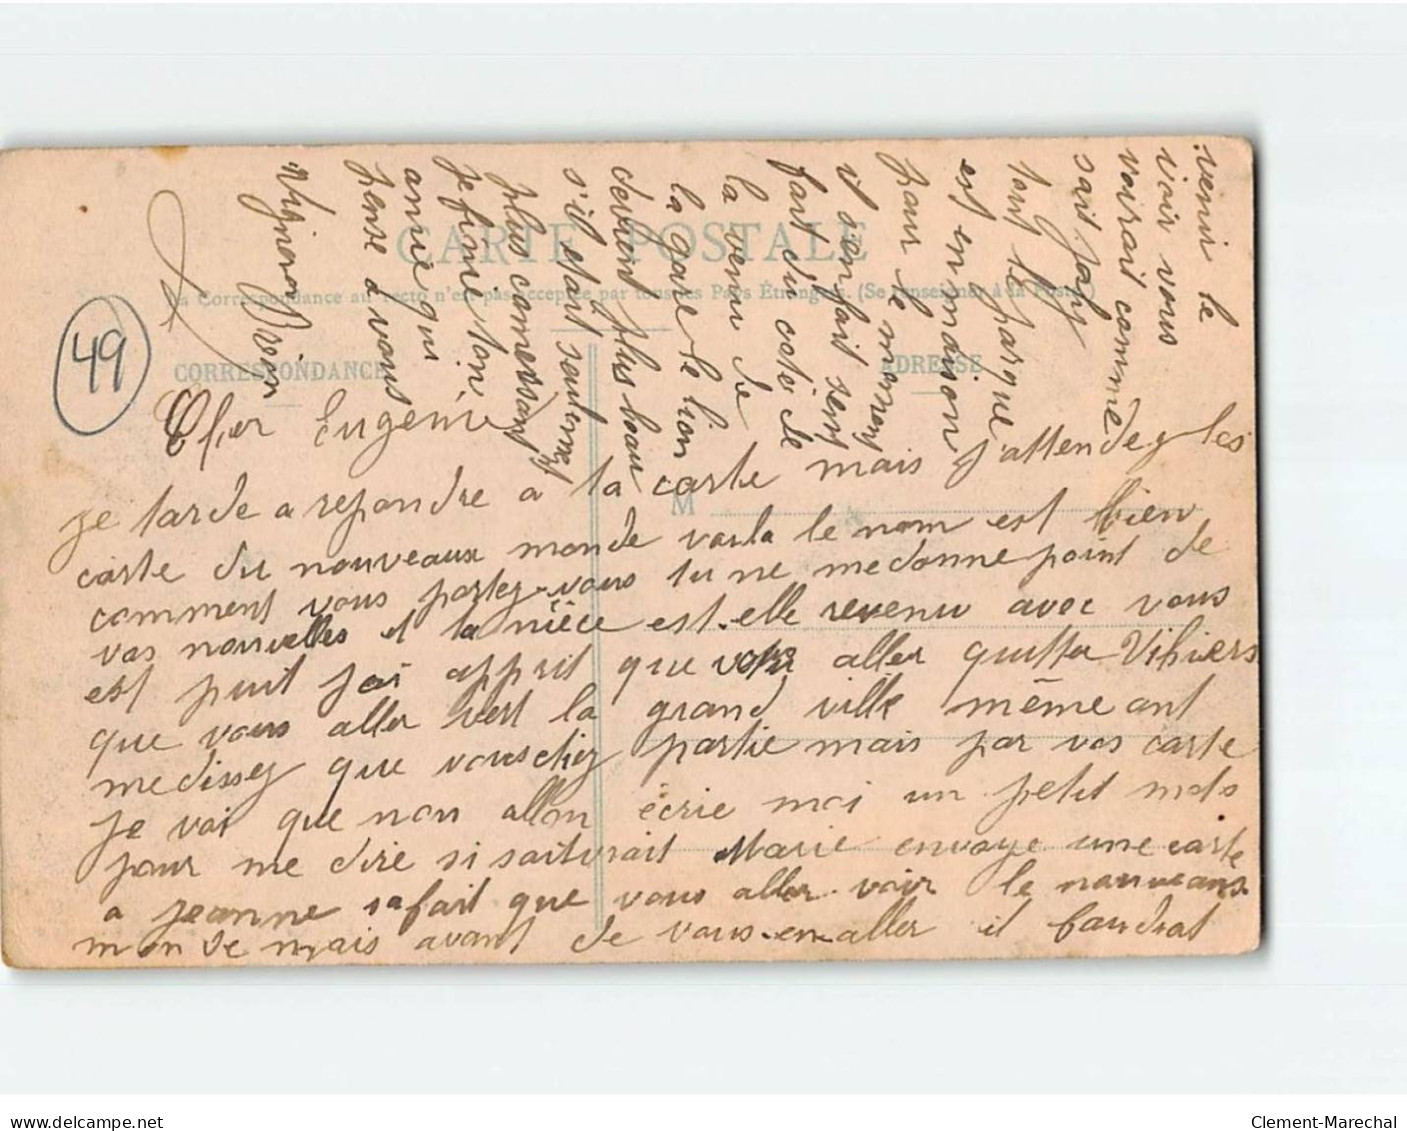 CARTE POSTALE
La Correspondance au recto n'est pas acceptée par tous les Pays Étrangers. (Se renseigner à la Poste)
CORRESPONDANCE
ADRESSE
M
49
Cher Eugenie
je tarde a repondre a ta carte mais j'attendez les
carte du nouveaux monde voila le nom est bien
comment vous portez-vous tu ne me donne point de
vos nouvelles et ta nièce est-elle revenu avec vous
est puit jai apprit que vous aller quitter Vihiers
que vous aller vert la grand ville même ant
me dissez que vous partie mais par vos carte
je voi que non allon écrie moi un petit mots
pour me dire si sait vrait Marie envoye une carte
a Jeanne sa fait que vous aller voir le nouveaux
monde mais avant de vous-en-aller il faudrat
venir le
voir vous
voirait comme
sait joly
tout le parque
est en maison
pour le moment
il s'en fait sert
fart du coté de
la venu de
la gare le lion
devient plus beau
s'il était seuleme
plus comersant
je finie ton
amie qui
pense à vous
Vigneron